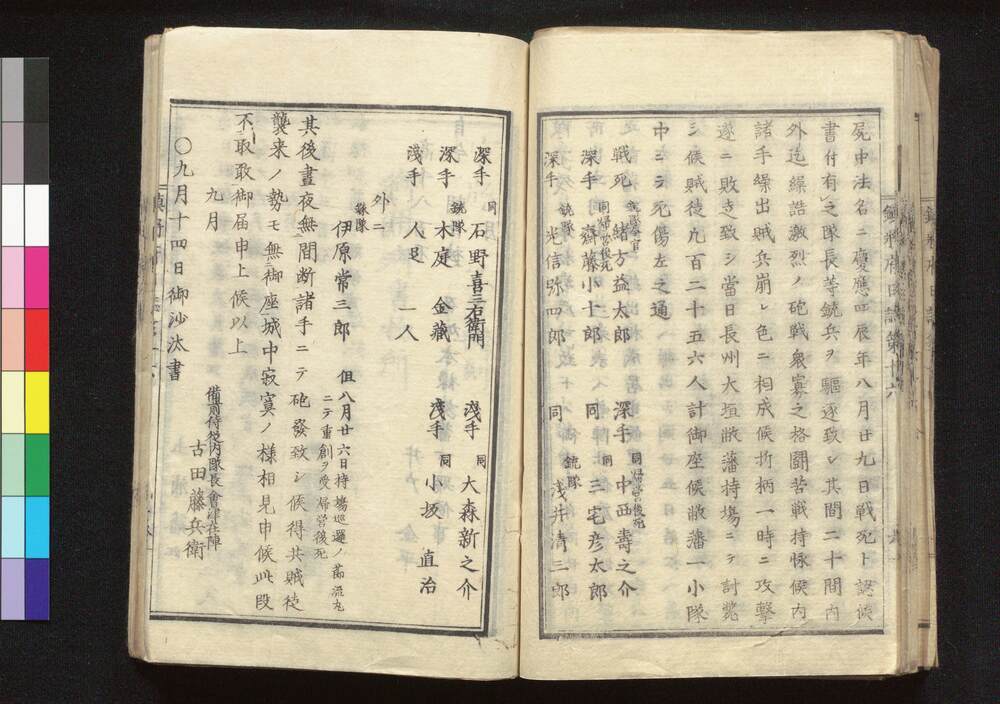 屍中法名ニ慶應四辰年八月廿九日戦死ト認候
書付有之隊長等銃兵ヲ驅逐致シ其間二十間内
外迄繰詰激烈ノ砲戦衆寡之格闘苦戦持怺候内
諸手繰出賊兵崩レ色ニ相成候折柄一時ニ攻撃
遂ニ敗走致シ當日長州大垣敝藩持場ニテ討斃
シ候賊徒九百二十五六人計御座候敝藩一小隊
中ニテ死傷左之通
戦死 緒方益太郎 深手 同帰営後死 中西壽之介
深手 同帰営後死 齋藤小十郎 同 同 三宅彦太郎
深手 銃隊 光信弥四郎 同 銃隊 浅井清三郎
深手 同 石野喜三右衛門 浅手 同 大森新之介
深手 銃隊 木庭金藏 浅手 同 小坂直治
浅手 人足 一人
外ニ
銃隊 伊原常三郎 但八月廿六日持場巡邏ノ節流丸
ニテ重創ヲ受帰営後死
其後晝夜無間断諸手ニテ砲發致シ候得共賊徒
襲来ノ勢モ無御座城中寂寞ノ様相見申候此段
不取敢御届申上候以上
九月
備前侍従内隊長會津在陣
古田藤兵衛
〇九月十四日御沙汰書
鎮將府日誌第十六